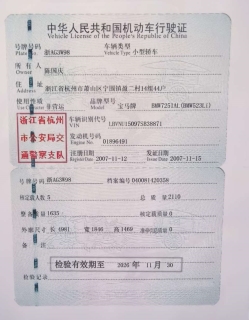 中华人民共和国机动车行驶证
Vehicle License of the People's Republic of China
号牌号码 浙AG3W98 车辆类型 小型轿车
Plate No. Vehicle Type
所有人 陈国庆
Owner
住址 浙江省杭州市萧山区宁围镇盈二村14组44户
Address
使用性质 非营运 品牌型号 宝马牌 BMW7251AL(BMW523LI)
浙江省杭州市公安局交通警察支队
车辆识别代号 LBVNU15097SB38871
VIN
发动机号码 01896491
Engine No.
注册日期 2007-11-12 发证日期 2007-11-15
Register Date Issue Date
号牌号码 浙AG3W98 档案编号
核定载人数 5 总质量 2110
整备质量 1635 核定载质量 0
外廓尺寸 长 4981 宽 1846 高 1469 0
备注
检验有效期至 2026 年 11月 30
检验记录